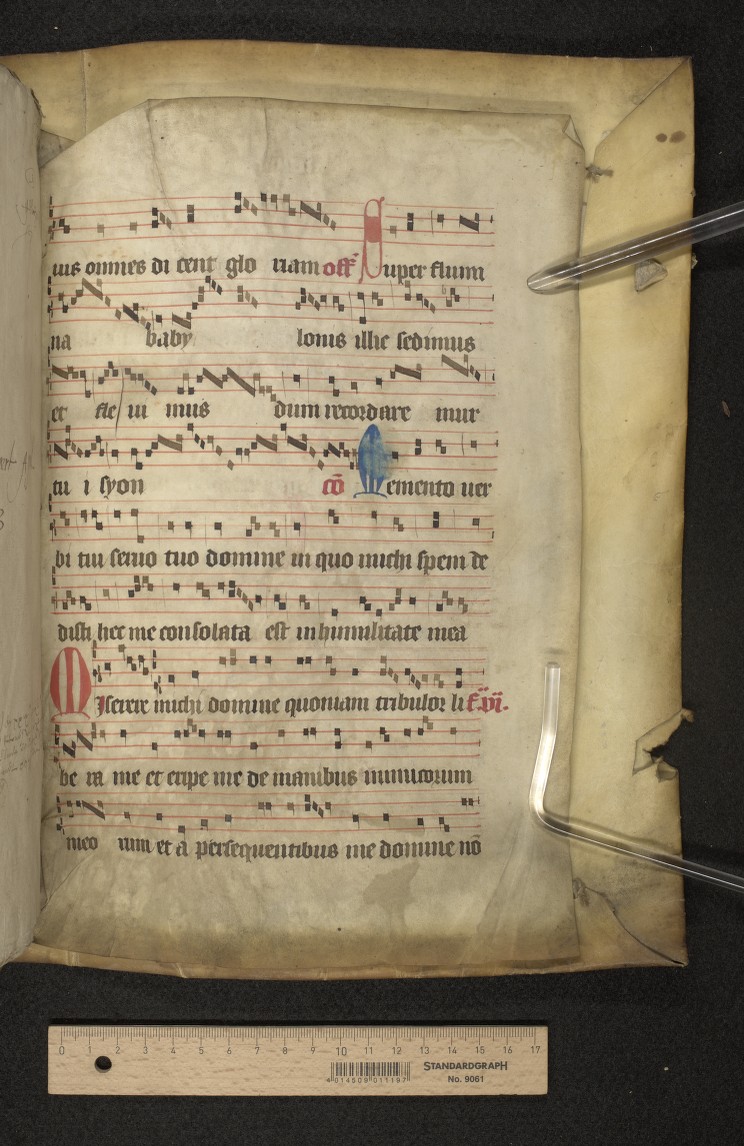 uis omnes di cent glo riam off Super flumi
na baby lonis illic sedimus
et fle ui mus dum recordare mur
tu i syon cō Memento uer
bi tui seruo tuo domine in quo michi spem de
disti hec me consolata est in humilitate mea
Miserere michi domine quoniam tribulor li f. vi.
be ra me et eripe me de manibus inimicorum
meo rum et a persequentibus me domine nō
0 1 2 3 4 5 6 7 8 9 10 11 12 13 14 15 16 17
4 014509 011197
STANDARDGRAPH
No. 9061